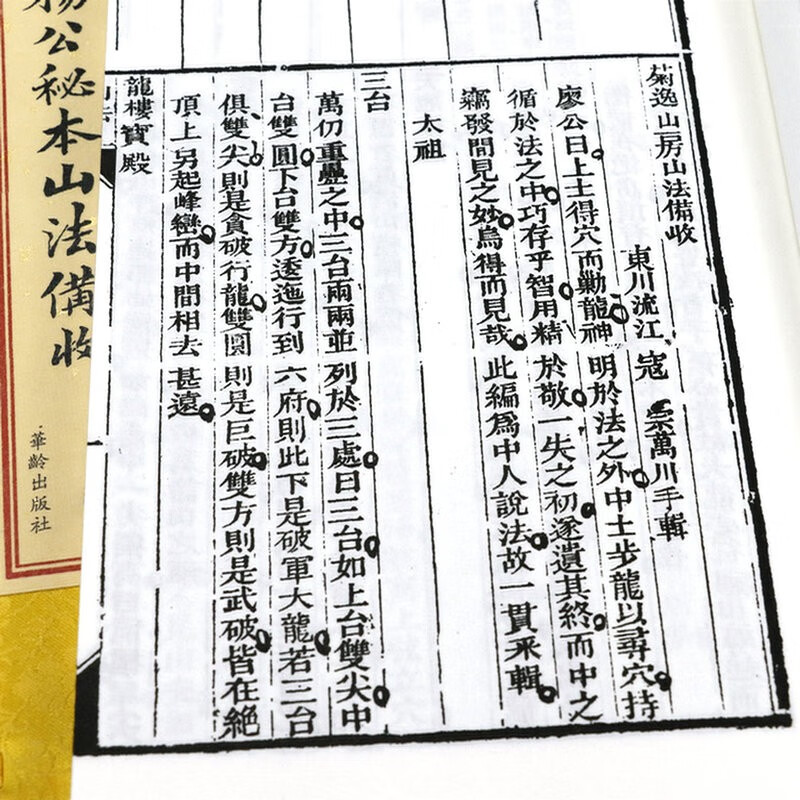 菊逸山房山法備收
東川流江寇宗萬川手輯
廖公曰上主得穴而勦龍神明於法之外中士步龍以尋穴持
循於法之中巧存乎智用精於敬一失之初遂遺其終而中之
竊發間見之妙烏得而見哉此編爲中人說法故一貫采輯
太祖
三台
萬仞重疊之中三台兩兩並列於三處曰三台如上台雙尖中
台雙圓下台雙方逶迤行到六府則此下是破軍大龍若三台
俱雙尖則是貪破行龍雙圓則是巨破雙方則是武破皆在絕
頂上另起峰巒而中間相去甚遠
龍樓寶殿
公秘本山法備收
華齡出版社